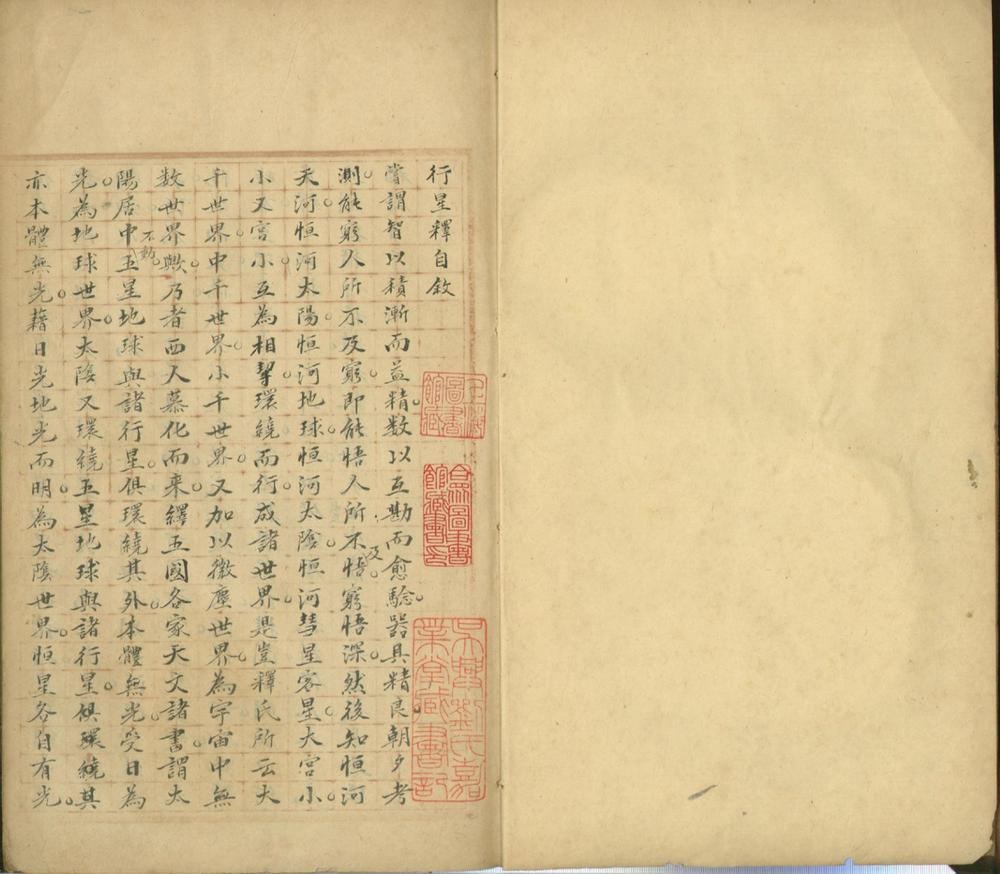 行星釋自敘
嘗謂智以積漸而益精数以互勘而愈驗器具精良朝夕考
測能窮人所不及窮即能悟人所不及悟窮悟深然後知恒河
天河恒河太陽恒河地球恒河太陰恒河彗星客星大宮小
小又宮小互為相挈環繞而行成諸世界是豈釋氏所云大
千世界中千世界小千世界又加以微塵世界為宇宙中無
数世界歟乃者西人慕化而来繹五國各家天文諸書謂太
陽居中不動五星地球與諸行星俱環繞其外本體無光受日為
光為地球世界太陰又環繞五星地球與諸行星俱環繞其
亦本體無光藉日光地光而明為太陰世界恒星各自有光
圖書
館藏
圖書
館藏書印
吳興劉氏嘉
業堂藏書記